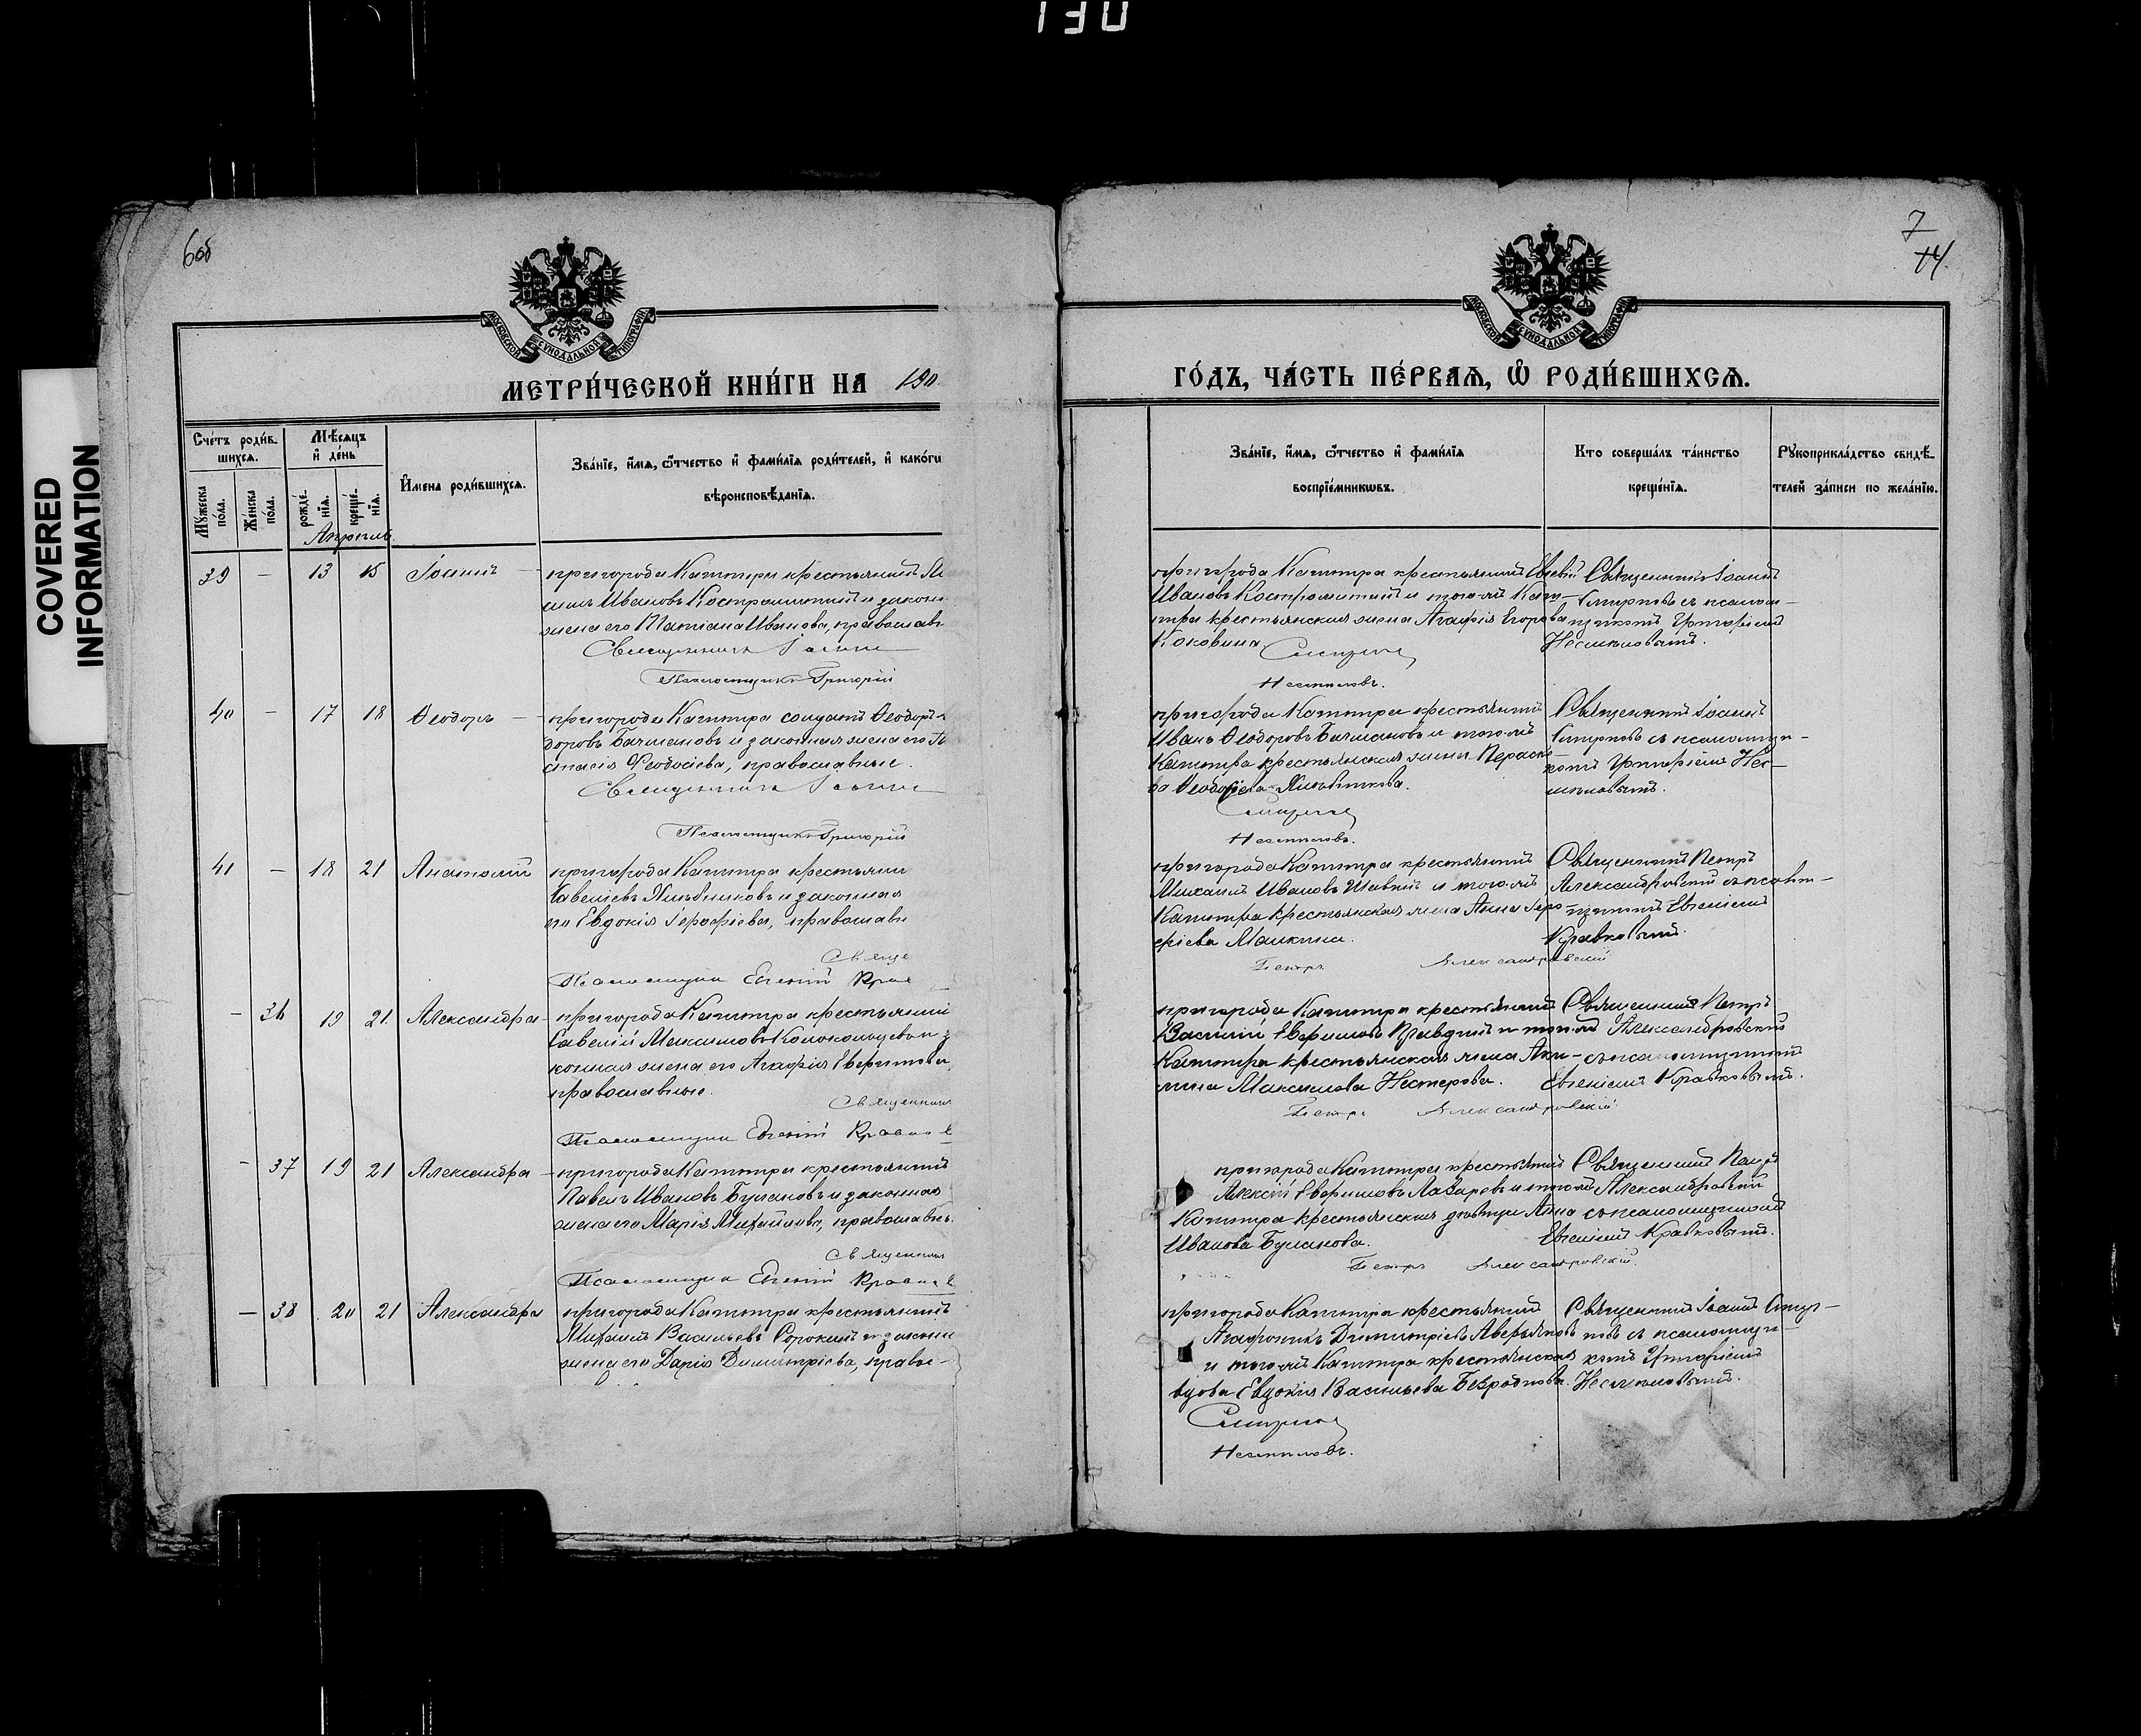 130
COVERED
INFORMATION
6об
7
14.
МОСКОВСКОЙ СѴНОДАЛЬНОЙ ТИПОГРАФІИ
МОСКОВСКОЙ СѴНОДАЛЬНОЙ ТИПОГРАФІИ
МЕТРИ́ЧЕСКОЙ КНИ́ГИ НА 190
ГО́ДЪ, ЧА́СТЬ ПЕ́РВАѦ, Ѽ РОДИ́ВШИХСѦ.
Сче́тъ роди́в-
шихсѧ.
Мꙋ́жеска по́ла.
Же́нска по́ла.
Мѣ́сѧцъ
и҆ де́нь
рожде́-
нїѧ.
креще́-
нїѧ.
И҆мена роди́вшихсѧ.
Зва́нїе, и҆́мѧ, ѻ҆́тчество и҆ фами́лїѧ роди́телей, и҆ како́гѡ
вѣроисповѣ́данїѧ.
Зва́нїе, и҆́мѧ, ѻ҆́тчество и҆ фами́лїѧ
воспрїе́мникѡвъ.
Кто соверша́лъ та́инство
креще́нїѧ.
Рꙋкоприкла́дство свидѣ́-
телей за́писи по жела́нїю.
Апрѣль.
39 – 13 15 Іоаннъ
пригорода Каштыра крестьянинъ
Ивановъ Костромитинъ и законн
жена его Татіана Иванова, православн
Священникъ Іоанн
Псаломщикъ Григорій
пригорода Каштыра крестьянинъ
Ивановъ Костромитинъ и того-же Каш-
тыра крестьянская жена Агафія Егорова
Коковина.
Смирнов
Несмѣловъ.
Священникъ Іоаннъ
Смирновъ съ псалом-
щикомъ Григоріемъ
Несмѣловымъ.
40 – 17 18 Ѳеодоръ
пригорода Каштыра солдатъ Ѳеодоръ
доровъ Бачмановъ и законная жена его
стасія Ѳеодосіева, православные.
Священникъ Іоанн
Псаломщикъ Григорій
пригорода Каштыра крестьянинъ
Иванъ Ѳеодоровъ Бачмановъ и того-же
Каштыра крестьянская жена Параске-
ва Хлѣбникова.
Смирнов
Несмѣловъ.
Священникъ Іоаннъ
Смирновъ съ псаломщи-
комъ Григоріемъ Нес-
мѣловымъ.
41 – 18 21 Анатолій
пригорода Каштыра крестьянин
Савеліевъ Хлѣбниковъ и законная
его Евдокія Іерофіева, православн
Свяще
Псаломщикъ Евгеній Крав
пригорода Каштыра крестьянинъ
Михаилъ Ивановъ и того-же
Каштыра крестьянская жена Анна Іеро-
фіева Малкина.
Петръ Александровскій
Священникъ Петръ
Александровскій съ псалом-
щикомъ Евгеніемъ
Кравковымъ.
– 36 19 21. Александра
пригорода Каштыра крестьянин
Савелій Максимовъ Колокольцевъ и за
конная жена его Агафія Евфимова,
православные.
Священник
Псаломщикъ Евгеній Кравков
пригорода Каштыра крестьянинъ
Василій Евфимовъ Правдинъ и того-же
Каштыра крестьянская жена Аки-
лина Максимова Нестерова.
Петръ Александровскій
Священникъ Петръ
Александровскій
съ псаломщикомъ
Евгеніемъ Кравковымъ.
– 37 19 21 Александра
пригорода Каштыра крестьянинъ
Павелъ Ивановъ Булановъ и законная
жена его Марія Михайлова, православн.
Священник
Псаломщикъ Евгеній Кравков
пригорода Каштыра крестьянинъ
Алексій Евфимовъ Лазаревъ и того-же
Каштыра крестьянская дѣвица Анна
Иванова Буланова.
Петръ Александровскій.
Священникъ Петръ
Александровскій
съ псаломщикомъ
Евгеніемъ Кравковымъ.
– 38 20 21 Александра
пригорода Каштыра крестьянинъ
Михаилъ Васильевъ Сорокинъ и законн
жена его Дарія Димитріева, правос-
пригорода Каштыра крестьянинъ
Агафоникъ Димитріевъ Аверьяновъ
и того-же Каштыра крестьянская
вдова Евдокія Васильева Безроднова.
Смирнов
Несмѣловъ.
Священникъ Іоаннъ Смир-
новъ съ псаломщи-
комъ Григоріемъ
Несмѣловымъ.